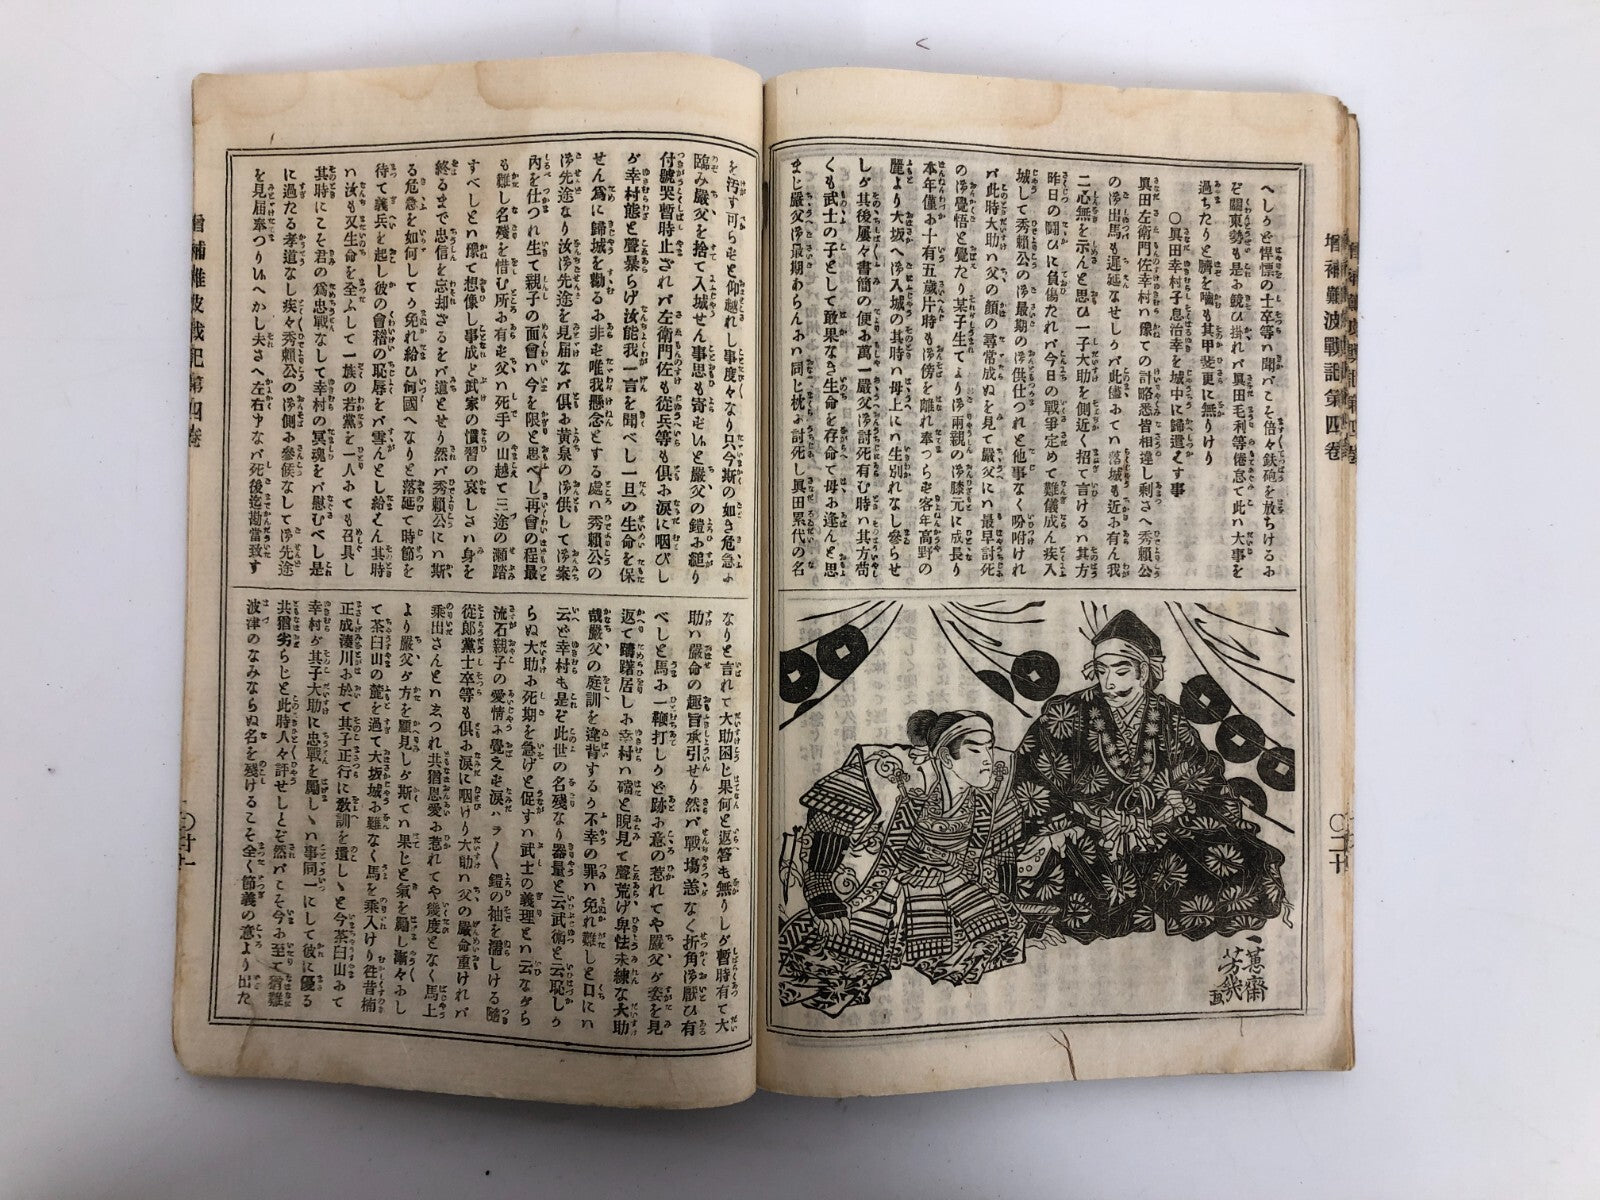 増補難波戰記第四卷
へしりと悍慓の士卒等ハ聞バこそ倍々鉄砲を放ちけるお
ぞ關東勢も是お競ひ掛れバ眞田毛利等倦怠て此ハ大事を
過ちたりと臍を嚙も其甲斐更に無りけり
○眞田幸村子息治幸を城中に歸遣くす事
眞田左衛門佐幸村ハ豫ての計略悉皆相違し剩さへ秀賴公
の御出馬も遅延なせしかバ此儘おてハ落城も近お有ん我
二心無を示んと思ひ一子大助を側近く招て言けるハ其方
昨日の闘ひに負傷たれバ今日の戰爭定めて難儀成ん疾入
城して秀賴公の御最期の御供仕つれと他事なく吩咐けれ
バ此時大助ハ父の顏の尋常成ぬを見て嚴父にハ最早討死
の御覺悟と覺たり某子生てより御兩親の御膝元に成長り
本年僅お十有五歲片時も御傍を離れ奉つらず客年高野の
麓より大坂へ御入城の其時ハ母上にハ生別れなし參らせ
しが其後屢々書簡の便お萬一嚴父御討死有む時ハ其方苟
くも武士の子として敢果なき生命を存命て母お逢んと思
まじ嚴父御最期あらんおハ同じ枕お討死し眞田累代の名
一蕙齋
芳幾
画
〇二十
を汚す可らずと仰越れし事度々なり只今斯の如き危急お
臨み嚴父を捨て入城せん事思も寄ずいと嚴父の鎧お縋り
付號哭暫時止されバ左衛門佐も從兵等も俱お淚に咽びし
が幸村態と聲暴らげ汝能我一言を聞べし一旦の生命を保
せん爲に歸城を勸るお非ず唯我懸念とする處ハ秀賴公の
御先途なり汝御先途を見届なバ俱お黄泉の御供して御案
內を仕つれ生て親子の面會ハ今を限と思へし再會の程最
も難し名殘を惜む所お有ず父ハ死手の山越て三途の瀬踏
すべしとハ豫て想像し事成ど武家の慣習の哀しさハ身を
終るまで忠信を忘却ざるをバ道とせり然バ秀賴公にハ斯
る危急を如何してか免れ給ひ何國へなりと落延て時節を
待て義兵を起し彼の會稽の恥辱をバ雪んとし給ん其時
ハ汝も又生命を全ふして一族の若黨を一人おても召具し
其時にこそ君の爲忠戰なして幸村の冥魂をバ慰むべし是
に過たる孝道なし疾々秀賴公の御側お參候なして御先途
を見届奉つりいへかし夫さへ左右アなバ死後迄勘當致す
なりと言れて大助困じ果何と返答も無りしが暫時有て大
助ハ嚴命の趣旨承引せり然バ戰塲恙なく折角御厭ひ有
べしと馬お一鞭打しかど跡お意の惹れてや嚴父が姿を見
返て躊躇居しお幸村ハ礑と睨見て聲荒げ卑怯未練な大助
哉嚴父の庭訓を違背するか不幸の罪ハ免れ難しと口にハ
云ど幸村も是ぞ此世の名殘なり器量と云武術と云恥しか
らぬ大助お死期を急げと促すハ武士の義理とハ云ながら
流石親子の愛情お覺えず淚ハラ〱鎧の袖を濡しける隨
從郎黨士卒等も俱お淚に咽けり大助ハ父の嚴命重けれバ
乘出さんとハ立つれ共猶恩愛お惹れてや幾度となく馬上
より嚴父が方を顧見しが斯てハ果じと氣を勵し漸々おし
て茶臼山の麓を過て大坂城お難なく馬を乘入けり徃昔楠
正成湊川お於て其子正行に敎訓を遺しゝと今茶臼山おて
幸村が其子大助に忠戰を勵しゝハ事同一にして彼に優る
共猶劣らじと此時人々評せしとぞ然バこそ今お至て猶難
波津のなみならぬ名を殘けるこそ全く節義の意より出た
増補難波戰記第四卷
〇廿一